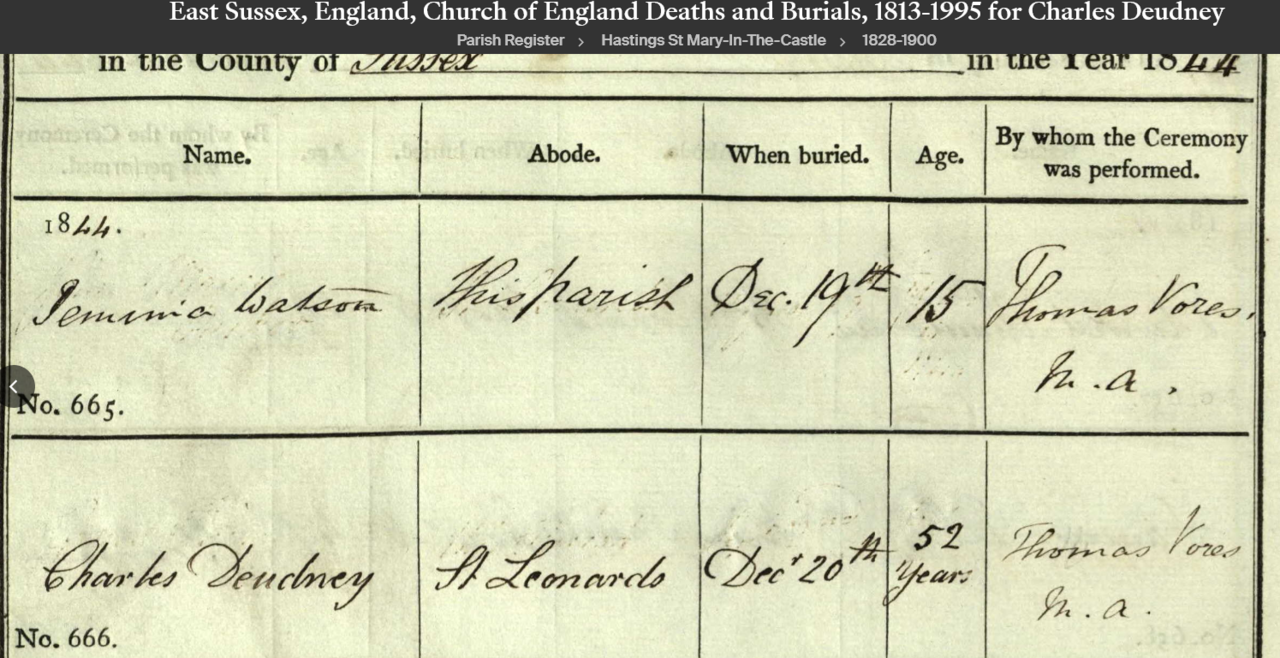 East Sussex, England, Church of England Deaths and Burials, 1813-1995 for Charles Deudney
Parish Register > Hastings St Mary-In-The-Castle > 1828-1900
in the County of Sussex in the Year 1844
Name. Abode. When buried. Age. By whom the Ceremony was performed.
1844.
Jemima Watson This parish Dec. 19th 15 Thomas Vores.
M.A.
No. 665.
Charles Deudney St Leonards Decr 20th 52 Years Thomas Vores
M.A.
No. 666.